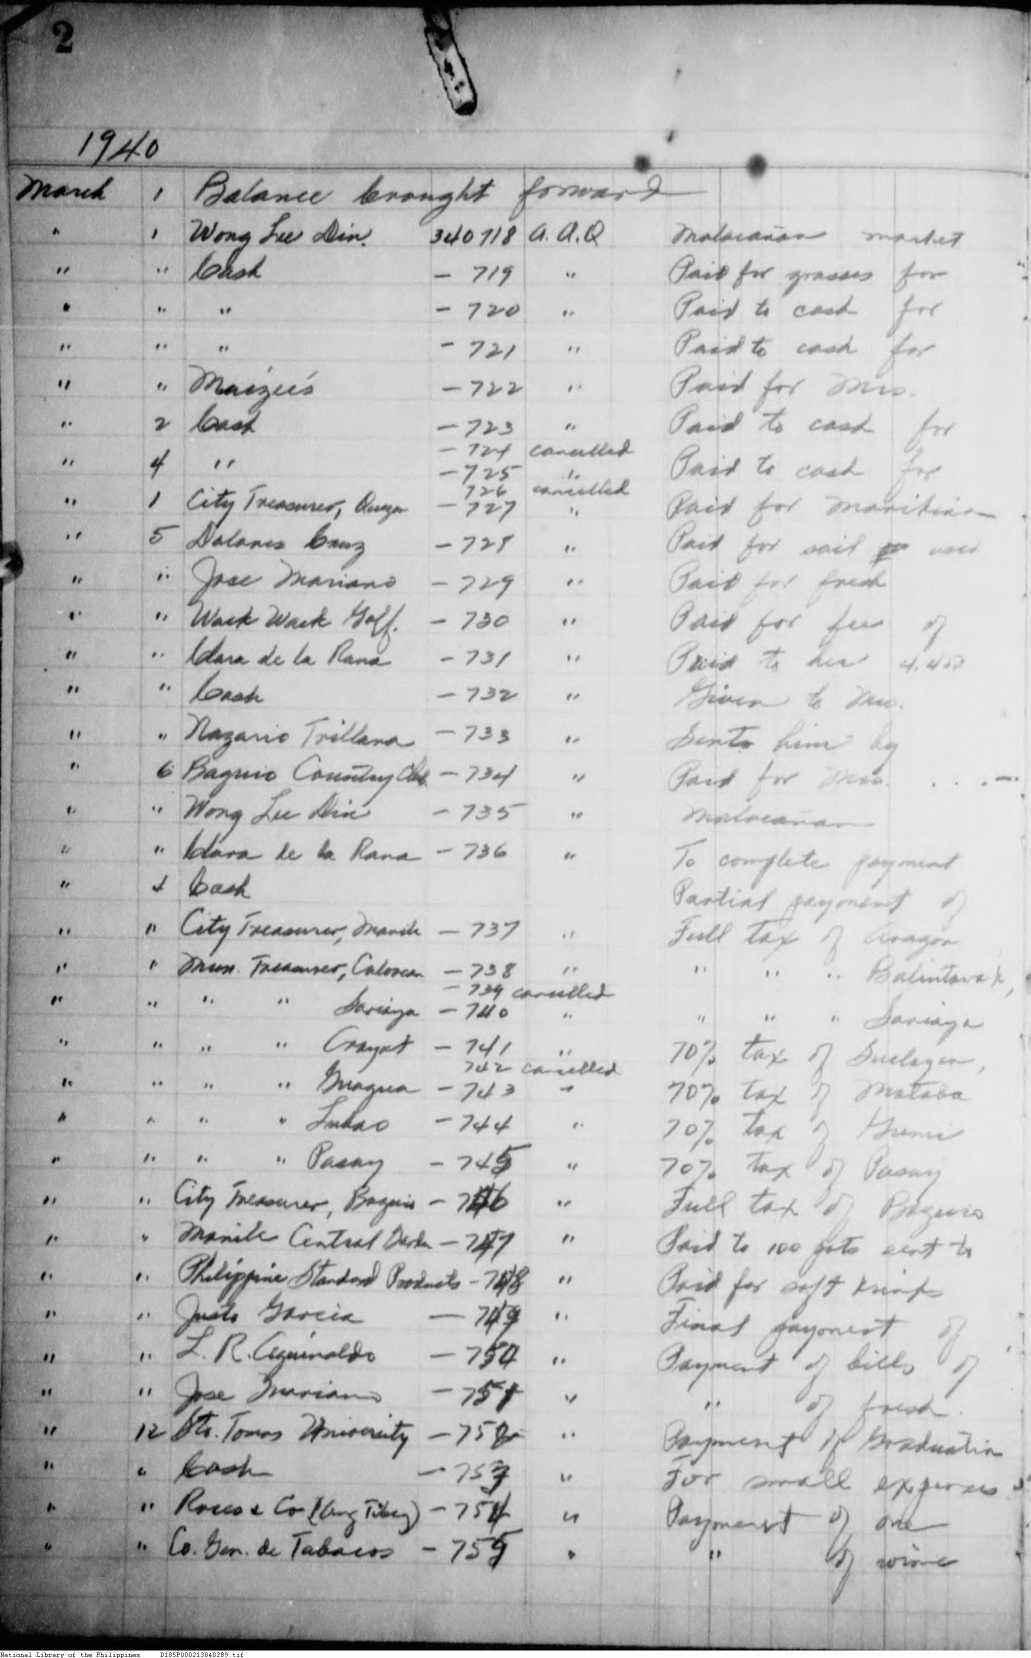 2
1940
March 1 Balance brought forward
" 1 Wong Lee Din. 340718 A. A. Q Malacañan market
" " Cash - 719 " Paid for grasses for
" " " - 720 " Paid to cash for
" " " - 721 " Paid to cash for
" " - 722 " Paid for Mrs.
" 2 Cash - 723 " Paid to cash for
- 724 cancelled
" 4 " - 725 " Paid to cash for
726 cancelled
" 1 City Treasurer, - 727 " Paid for
" 5 Dolores Cruz - 728 " Paid for used
" " Jose Mariano - 729 " Paid for fresh
" " Wack Wack Golf. - 730 " Paid for fee of
" " Clara de la Rama - 731 " Paid to her
" " Cash - 732 " Given to Mrs.
" " Nazario Trillana - 733 " Sent to him by
" 6 Baguio Country Club - 734 " Paid for Mrs.
" " Wong Lee Din - 735 " Malacañan
" " Clara de la Rama - 736 " To complete payment
" 4 Cash Partial payment of
" " City Treasurer, Manila - 737 " Full tax of Aragon
" " Mun. Treasurer, Caloocan - 738 " " " " Balintawak,
- 739 cancelled
" " " " Sariaya - 740 " " " " Sariaya
" " " " Arayat - 741 " 70% tax of
742 cancelled
" " " " Guagua - 743 " 70% tax of Mataba
" " " " Lubao - 744 " 70% tax of Gumi
" " " " Pasay - 745 " 70% tax of Pasay
" " City Treasurer, Baguio - 746 " Full tax of Baguio
" " Manila Central - 747 " Paid to 100 pots sent to
" " Philippine Standard Products - 748 " Paid for soft drinks
" " Justo Garcia - 749 " Final payment of
" " L. R. Aguinaldo - 750 " Payment of bills of
" " Jose Mariano - 751 " " of fresh
" 12 Sto. Tomas University - 752 " Payment of Graduation
" " Cash - 753 " For small expenses
" " Roces & Co (Ang Tibay) - 754 " Payment of one
" " Co. Gen. de Tabacos - 755 " " of wine
National Library of the Philippines D185P000213040289.tif